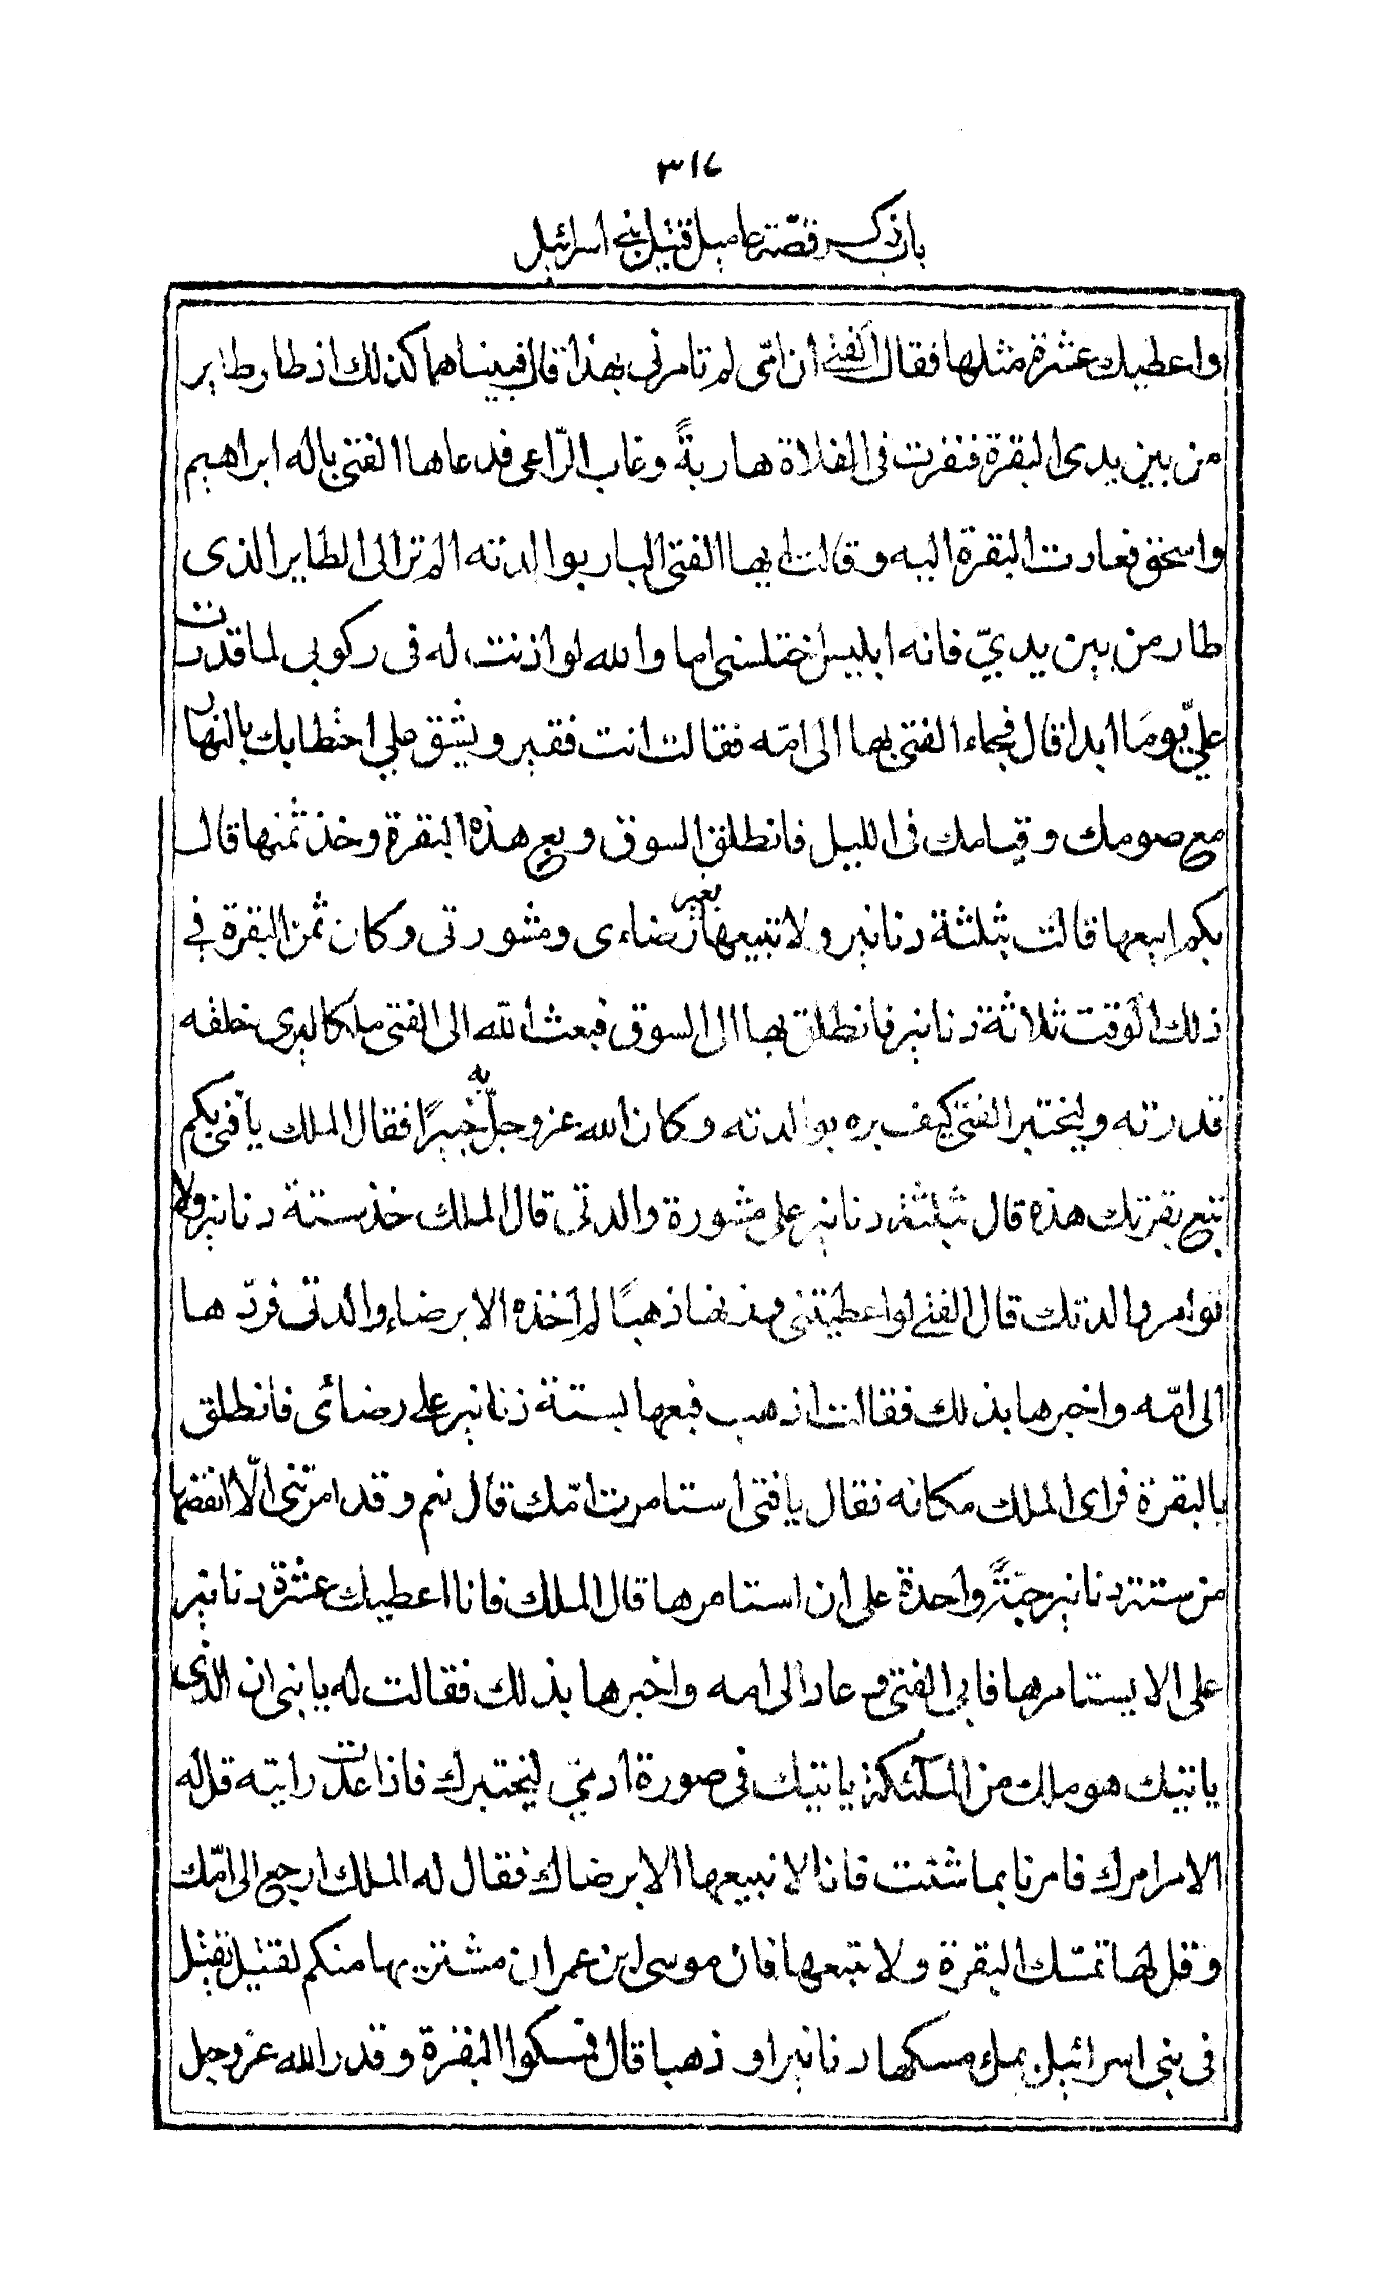 ٣١٧
باب ذكر قصة عاميل قتيل بني اسرائيل
واعطيك عشرة مثلها فقال الفتى ان امّى لم تامرنى بهذا قال فبيناهما كذلك اذ طار طاير
من بين يدى البقرة فنفرت فى الفلاة هاربةً وغاب الرّاعى فدعاها الفتى باله ابراهيم
واسحٰق فعادت البقرة اليه وقالت ايها الفتى البار بوالدته الم تر الى الطاير الذى
طار من بين يديّ فانه ابليس اختلسنى اما والله لو اذنت له فى ركوبى لما قدرت
عليّ يومًا ابدا قال فجاء الفتى بها الى امّه فقالت انت فقير ويشق علي احتطابك بالنهار
مع صومك وقيامك فى الليل فانطلق السوق وبع هذه البقرة وخذ ثمنها قال
بكم ابيعها قالت بثلثة دنانير ولا تبيعها بغير رضاءى ومشورتى وكان ثمن البقرة في
ذلك الوقت ثلاثة دنانير فانطلق بها الى السوق فبعث الله الى الفتى ملكا ليرى خلقه
قدرته وليختبر الفتى كيف بره بوالدته وكان الله عز وجلّ به خبيرًا فقال الملك يا فتى بكم
تبيع بقرتك هذه قال بثلثة دنانير على مشورة والدتى قال الملك خذ ستة دنانير ولا
توامر والدتك قال الفتى لو اعطيتنى وزنها ذهبًا لم آخذه الا برضاء والدتى فردّها
الى امّه واخبرها بذلك فقالت اذهب فبعها بستة دنانير على رضائى فانطلق
بالبقرة فراى الملك مكانه فقال يا فتى استامرت امّك قال نعم وقد امرتنى الّا انقضها
من ستة دنانير حبّةً واحدة على ان استامرها قال الملك فانا اعطيك عشرة دنانير
على الا يستامرها فابى الفتى وعاد الى امه واخبرها بذلك فقالت له يا بنى ان الذى
ياتيك هو ملك من الملٓئكة ياتيك فى صورة ادميّ ليختبرك فاذا عدت رايته قل له
الامر امرك فامرنا بما شئت فانا لا نبيعها الا برضاك فقال له الملك ارجع الى امّك
وقل لها تمسّك البقرة ولا تبعها فان موسى ابن عمران مشتريها منكم لقتيل يقتل
فى بنى اسرائيل بملء مسكها دنانير او ذهبا قال فمسكوا البقرة وقدر الله عز وجل